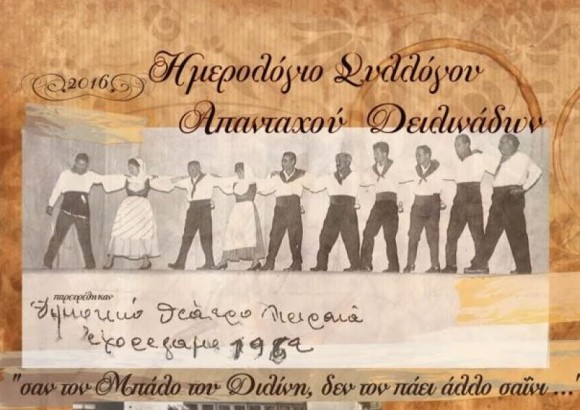 2016
Ημερολόγιο Συλλόγου
Απανταχού Δειλινάδων
Δημοτικό Θέατρο Πειραιά
Εχορεψαμε 1962
"σαν τον Μπάλο του Διλίνη, δεν τον πάει άλλο σαΐνι ..."